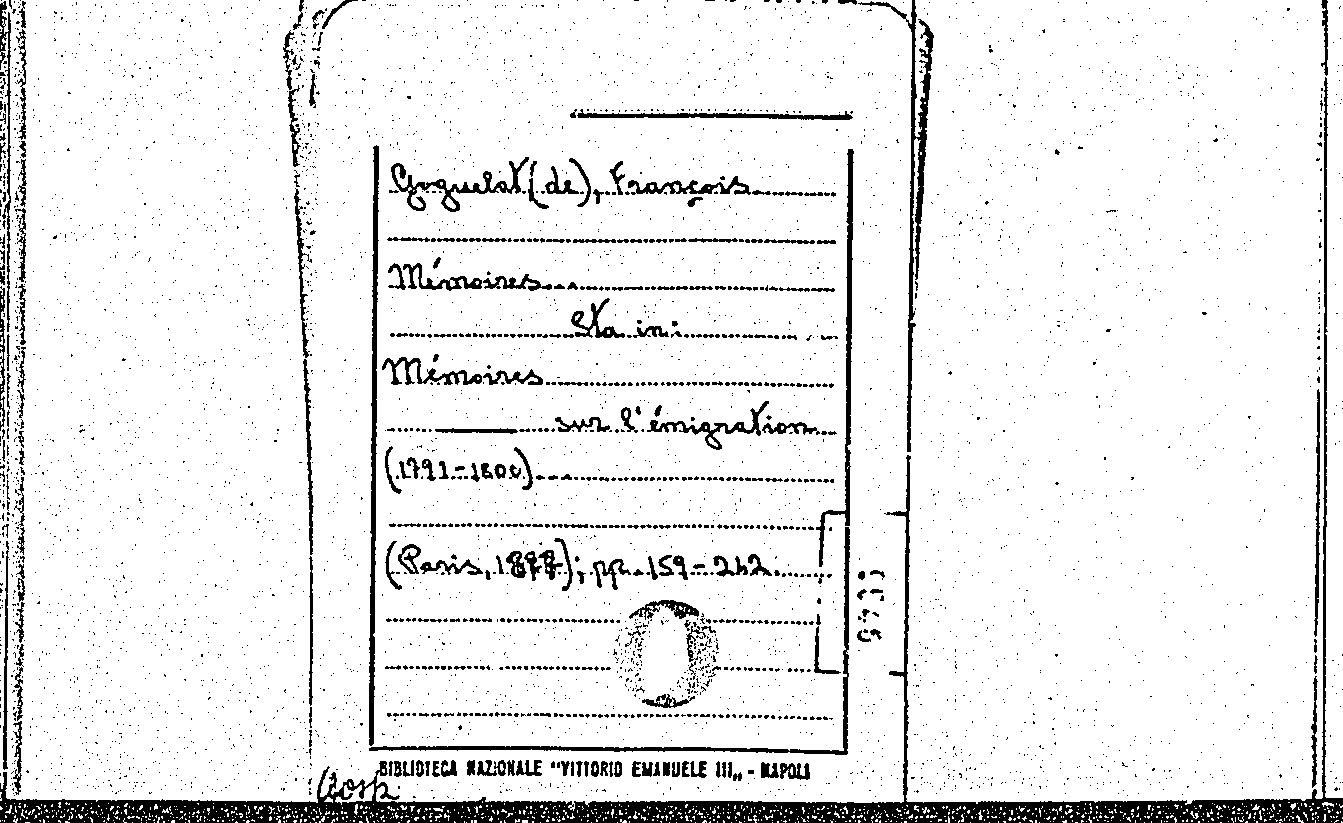 Goguelat (de), François
Mémoires...
Sta in:
Mémoires
sur l'émigration
(1791-1800)...
(Paris, 1877); pp. 159-242.
BIBLIOTECA NAZIONALE "VITTORIO EMANUELE III„ - NAPOLI